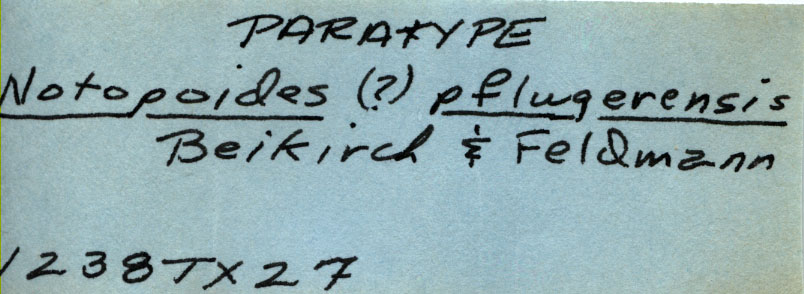 PARATYPE
Notopoides (?) pflugerensis
Beikirch & Feldmann
1238TX27